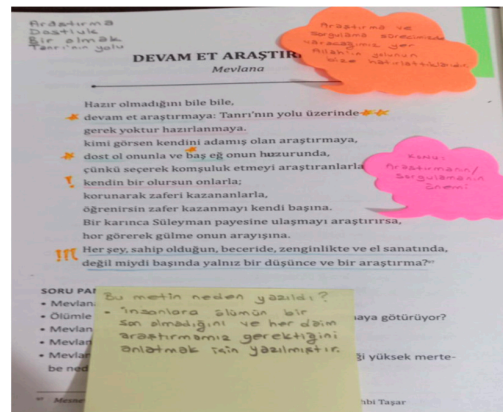 Araştırma
Dostluk
Bir olmak
Tanrı'nın yolu
Araştırma ve
sorgulama sürecimizde
varacağımız yer
Allah'ın yolunun
bize hatırlattıklarıdır.
DEVAM ET ARAŞTIR
Mevlana
Hazır olmadığını bile bile,
devam et araştırmaya: Tanrı'nın yolu üzerinde
gerek yoktur hazırlanmaya.
kimi görsen kendini adamış olan araştırmaya,
dost ol onunla ve baş eğ onun huzurunda,
çünkü seçerek komşuluk etmeyi araştıranlarla
kendin bir olursun onlarla;
korunarak zaferi kazananlarla,
öğrenirsin zafer kazanmayı kendi başına.
Bir karınca Süleyman payesine ulaşmayı araştırırsa,
hor görerek gülme onun arayışına.
Her şey, sahip olduğun, beceride, zenginlikte ve el sanatında,
değil miydi başında yalnız bir düşünce ve bir araştırma?
Konu:
Araştırmanın/
Sorgulamanın
önemi
SORU PA
• Mevlan
• Ölümle
• Mevlan
• Mevlan
• Mevlan
be ned
Bu metin neden yazıldı?
• İnsanlara ölümün bir
son olmadığını ve her daim
araştırmamız gerektiğini
anlatmak için yazılmıştır.
maya götürüyor?
ği yüksek merte-
Mesne
hbi Taşar